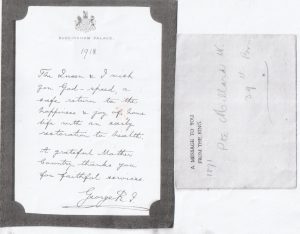 BUCKINGHAM PALACE
1918.
The Queen & I wish
you God-speed, a
safe return to the
happiness & joy of home
life with an early
restoration to health.
A grateful Mother
Country thanks you
for faithful services.
George R.I.
A MESSAGE TO YOU
FROM THE KING
Pte